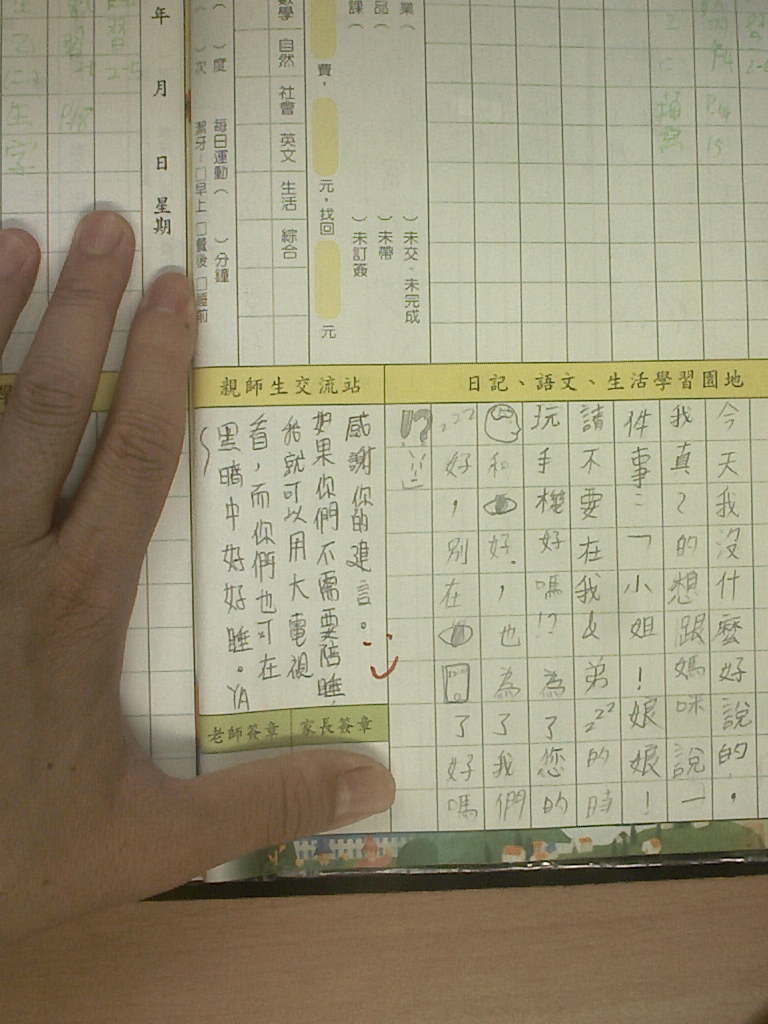 年 月 日 星期
數學 自然 社會 英文 生活 綜合
每日運動（ ）分鐘
潔牙：□早上 □餐後 □睡前
費， 元，找回 元
業（ ）未交、未完成
品（ ）未帶
課（ ）未訂簽
日記、語文、生活學習園地
今天我沒什麼好說的.
我真的想跟媽咪說一
件事：「小姐！娘娘！
請不要在我&弟zzz的時
玩手機好嗎!?為了您的
和好.，也為了我們
zzz好，別在了好嗎
!?...」
親師生交流站
感謝你的建言。
如果你們不需要陪睡，
我就可以用大電視
看，而你們也可在
黑暗中好好睡。YA
老師簽章 家長簽章